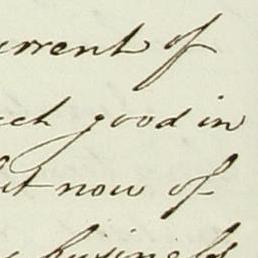 urrent of
uch good in
but now of
business